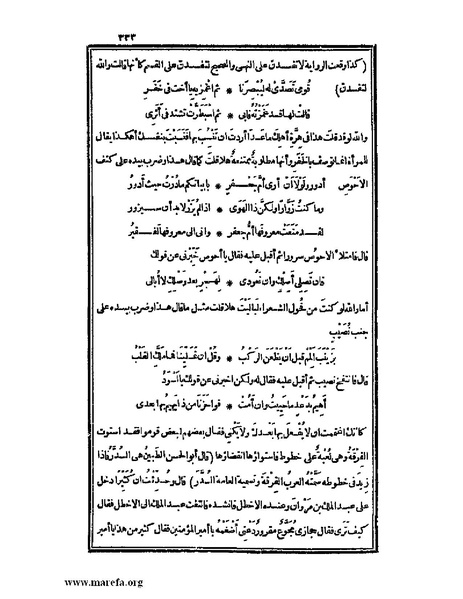 ٣٣٣
(كذا وقعت الرواية لا تفسدن على النهى والصحيح لتفسدن على القسم كأنها قالت والله
لتفسدن) قومى تصدى له ليبصرنا * ثم اغمزيه يا أخت فى خفر
قالت لها قد غمزته فأبى * ثم اسبطرت تشتد فى أثرى
والله لو قد قلت هذا فى هرة أهلك ما عدا أردت أن تنسب بها فنسبت بنفسك أهكذا يقال
للمرأة انما توصف بالخفر وأنها مطلوبة ممتنعة هلا قلت كما قال هذا وضرب بيده على كتف
الاحوص أدور ولولا أن أرى أم جعفر * بابياتكم ما درت حيث أدور
وما كنت زوّارا ولكن ذا الهوى * اذا لم يزر لا بد أن سيزور
لقد منعت معروفها أم جعفر * وانى الى معروفها لفقير
قال فامتلأ الاحوص سرورا ثم أقبل عليه فقال يا أحوص خبرنى عن قولك
فان تصلى أصلك وان تعودى * لهجر بعد وصلك لا أبالى
أما والله لو كنت من فحول الشعراء لباليت هلا قلت مثل ما قال هذا وضرب بيده على
جنب نصيب
بزينب ألمم قبل أن يظعن الركب * وقل ان تملينا فما ملك القلب
قال فانتفخ نصيب ثم أقبل عليه فقال له ولكن اخبرنى عن قولك يا أسود
أهيم بدعد ما حييت وان أمت * فوا حزنا من ذا يهيم بها بعدى
كأنك اغتممت ان لا يفعل بها بعدك ولا يكنى فقال بعضهم لبعض قوموا فقد استوت
الفرقة وهى لعبة على خطوط فاستواؤها انقضاؤها (قال أبو الحسن الطبن هى السدر فاذا
زيد فى خطوطه سمته العرب الفرقة وتسميه العامة السدر) قال وحدثت ان كثيرا دخل
على عبد الملك بن مروان وعنده الاخطل فأنشده فالتفت عبد الملك الى الاخطل فقال
كيف ترى فقال حجازى مجوع مقرور دعنى أضغمه يا أمير المؤمنين فقال كثير من هذا يا أمير
www.marefa.org